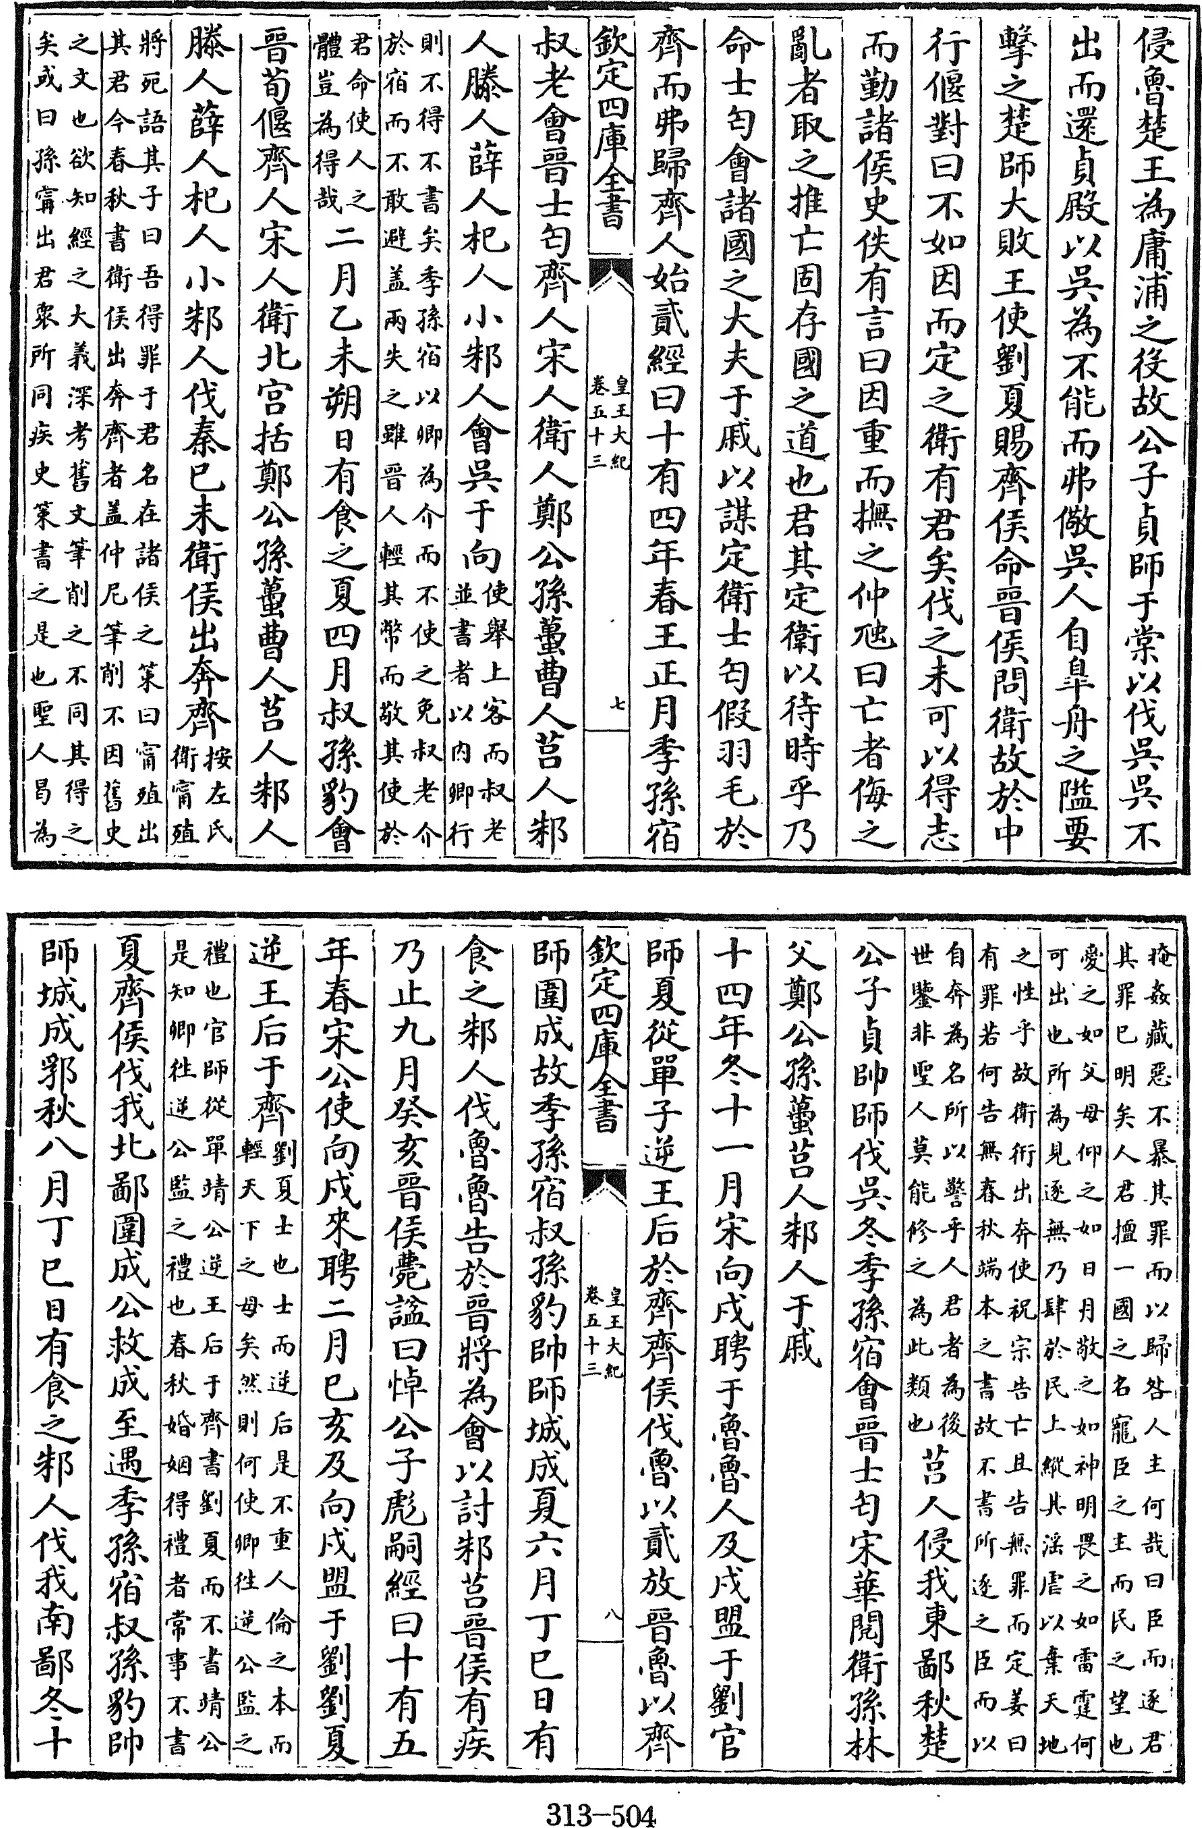 侵魯楚王為庸浦之役故公子貞師于棠以伐吳吳不
出而還貞殿以吳為不能而弗儆吳人自臯舟之隘要
擊之楚師大敗王使劉夏賜齊侯命晉侯問衛故於中
行偃對曰不如因而定之衛有君矣伐之未可以得志
而勤諸侯史佚有言曰因重而撫之仲虺曰亡者侮之
亂者取之推亡固存國之道也君其定衛以待時乎乃
命士匄會諸國之大夫于戚以謀定衛士匄假羽毛於
齊而弗歸齊人始貳經曰十有四年春王正月季孫宿
欽定四庫全書
皇王大紀
卷五十三
七
叔老會晉士匄齊人宋人衛人鄭公孫蠆曹人莒人邾
人滕人薛人杞人小邾人會吳于向使舉上客而叔老
並書者以內卿行
則不得不書矣季孫宿以卿為介而不使之免叔老介
於宿而不敢避盖兩失之雖晉人輕其幣而敬其使於
君命使人之
體豈為得哉二月乙未朔日有食之夏四月叔孫豹會
晉荀偃齊人宋人衛北宮括鄭公孫蠆曹人莒人邾人
滕人薛人杞人小邾人伐秦已未衛侯出奔齊按左氏
衛甯殖
將死語其子曰吾得罪于君名在諸侯之策曰甯殖出
其君今春秋書衛侯出奔齊者盖仲尼筆削不因舊史
之文也欲知經之大義深考舊文筆削之不同其得之
矣或曰孫甯出君衆所同疾史策書之是也聖人曷為
掩姦藏惡不暴其罪而以歸咎人主何哉曰臣而逐君
其罪已明矣人君擅一國之名寵臣之主而民之望也
愛之如父母仰之如日月敬之如神明畏之如雷霆何
可出也所為見逐無乃肆於民上縱其淫虐以棄天地
之性乎故衛衎出奔使祝宗告亡且告無罪而定姜曰
有罪若何告無春秋端本之書故不書所逐之臣而以
自奔為名所以警乎人君者為後
世鑒非聖人莫能修之為此類也莒人侵我東鄙秋楚
公子貞帥師伐吳冬季孫宿會晉士匄宋華閱衛孫林
父鄭公孫蠆莒人邾人于戚
十四年冬十一月宋向戌聘于魯魯人及戌盟于劉官
師夏從單子逆王后於齊齊侯伐魯以貳故晉魯以齊
欽定四庫全書
皇王大紀
卷五十三
八
師圍成故季孫宿叔孫豹帥師城成夏六月丁巳日有
食之邾人伐魯魯告於晉將為會以討邾莒晉侯有疾
乃止九月癸亥晉侯薨謚曰悼公子彪嗣經曰十有五
年春宋公使向戌來聘二月巳亥及向戌盟于劉劉夏
逆王后于齊劉夏士也士而逆后是不重人倫之本而
輕天下之母矣然則何使卿往逆公監之
禮也官師從單靖公逆王后于齊書劉夏而不書靖公
是知卿往逆公監之禮也春秋婚姻得禮者常事不書
夏齊侯伐我北鄙圍成公救成至遇季孫宿叔孫豹帥
師城成郛秋八月丁巳日有食之邾人伐我南鄙冬十
313-504